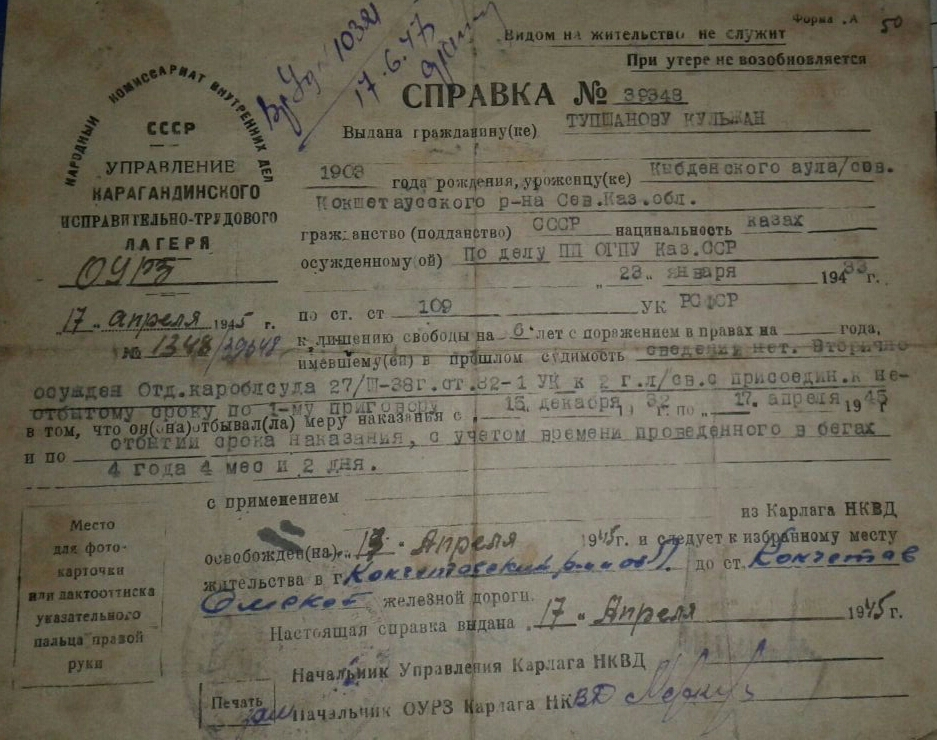 Форма „А
50
Видом на жительство не служит
При утере не возобновляется
17.6.47
НАРОДНЫЙ КОМИССАРИАТ ВНУТРЕННИХ ДЕЛ
СССР
УПРАВЛЕНИЕ
КАРАГАНДИНСКОГО
ИСПРАВИТЕЛЬНО-ТРУДОВОГО
ЛАГЕРЯ
ОУРЗ
17 „ апреля 1945 г.
№ 1348/39648
СПРАВКА № 39348
Выдана гражданину(ке) ТУПШАНОВУ КУЛЬЖАН
1903 года рождения, уроженцу(ке) Кыбденского аула/сов.
Кокшетаусского р-на Сев.Каз.обл.
гражданство (подданство) СССР национальность казах
осужденному(ой) По делу ПП ОГПУ Каз.ССР
„ 23 „ января 1933 г.
по ст. ст 109 УК РСФСР
к лишению свободы на 6 лет с поражением в правах на года,
имевшему(ей) в прошлом судимость сведений нет. Вторично
осужден Отд.кароблсуда 27/Ш-38г.ст.82-1 УК к 2 г.л/св.с присоедин.к не-
отбытому сроку по 1-му приговору
в том, что он(она)отбывал(ла) меру наказанья с „ 15 декабря 1932 г по „ 17. апреля 1945 г
и по отбытии срока наказания, с учетом времени проведенного в бегах
4 года 4 мес и 2 дня.
с применением
из Карлага НКВД
освобожден(на) „ Апреля 1945 г. и следует к избранному месту
жительства в г. Кокчетавский до ст. Кокчетав
Омской железной дороги.
Настоящая справка выдана „ 17 „ Апреля 1945 г.
Место
для фото-
карточки
или дактооттиска
указательного
пальца правой
руки
Начальник Управления Карлага НКВД
Печать
Начальник ОУРЗ Карлага НКВД